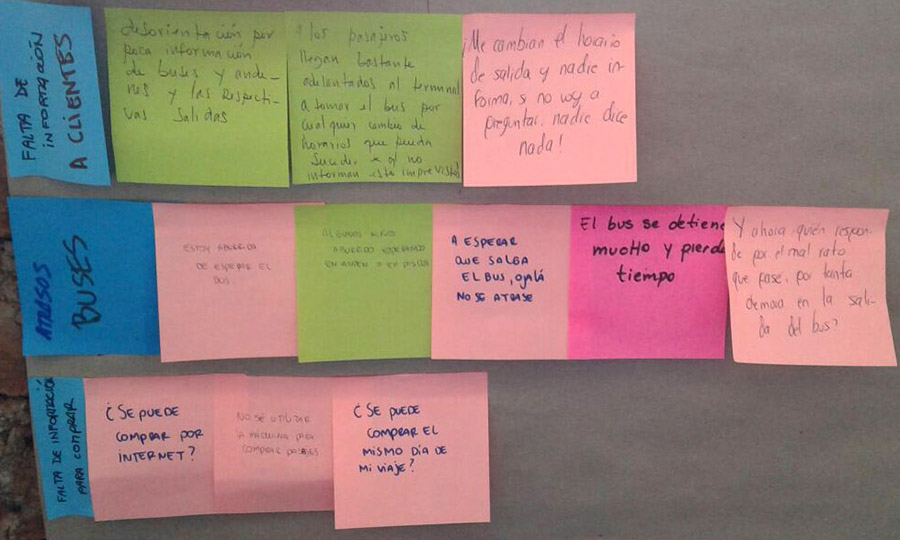 FALTA DE
INFORMACIÓN
A CLIENTES
desorientación por
poca información
de buses y ande-
nes y las Respecti-
vas salidas
los pasajeros
llegan bastante
adelantados al terminal
a tomar el bus por
cualquier cambio de
horarios que pueda
suceder x q' no
informan este imprevisto
¡Me cambian el horario
de salida y nadie in-
forma, si no voy a
preguntar, nadie dice
nada!
ATRASOS
BUSES
ESTOY ABURRIDA
DE ESPERAR EL
BUS.
ALGUNOS
ABURRIDO ESPERANDO
EN ANDEN
A ESPERAR
QUE SALGA
EL BUS, OJALÁ
NO SE ATRASE
El bus se detiene
mucho y pierde
tiempo
Y ahora quién respon-
de por el mal rato
que pasé, por tanta
demora en la sali-
da del bus?
FALTA DE INFORMACIÓN
PARA COMPRAR
¿SE PUEDE
COMPRAR POR
INTERNET?
NO SÉ UTILIZAR
LA MÁQUINA PARA
COMPRAR PASAJES
¿SE PUEDE
COMPRAR EL
MISMO DÍA DE
MI VIAJE?